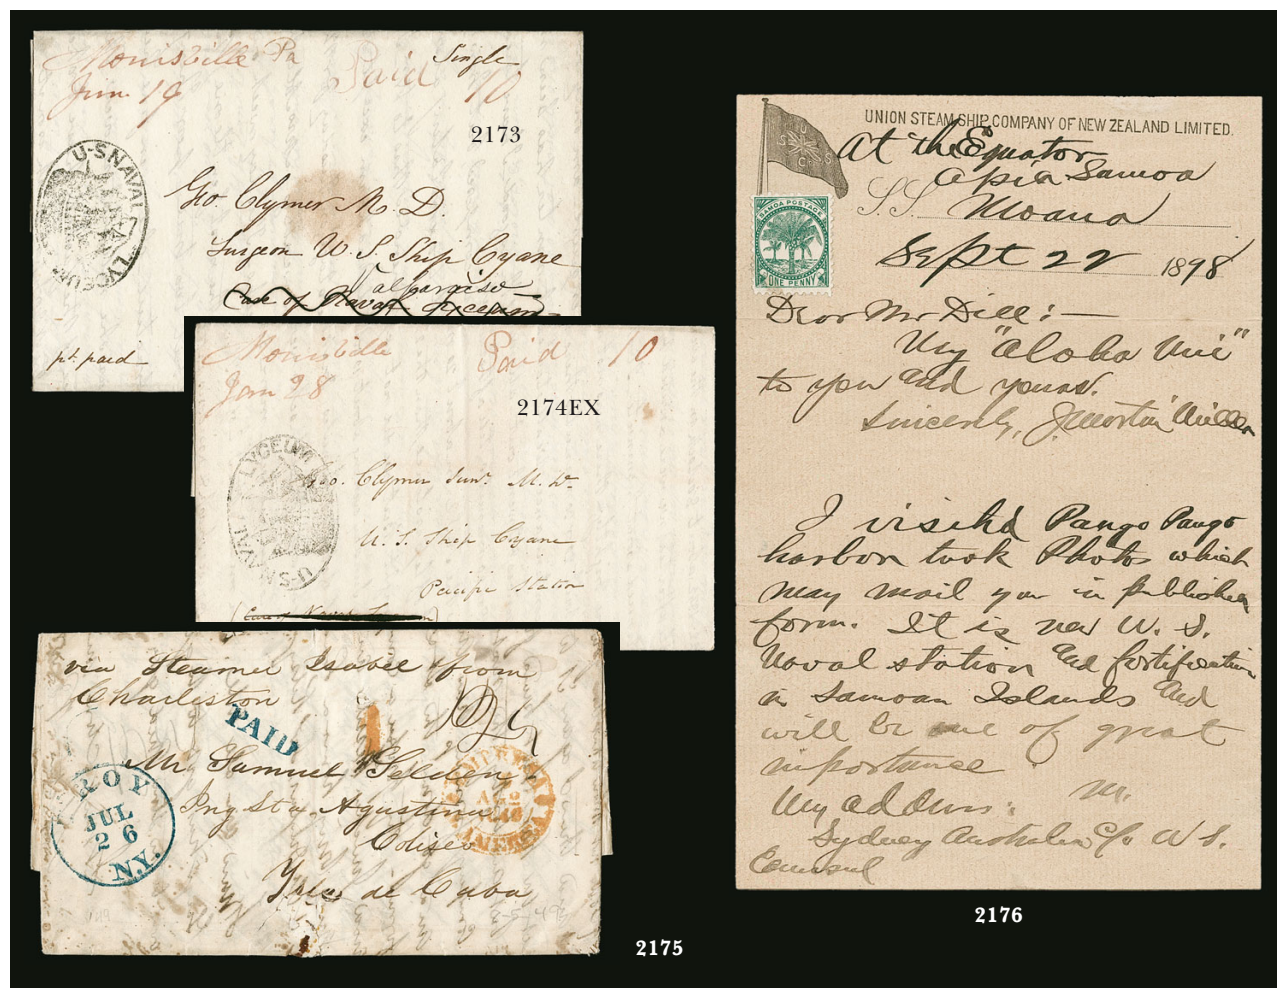 Morrisville Pa
Paid
Single
Jan. 19
10
2173
U-S NAVAL LYCEUM
Geo Clymer M. D.
Surgeon U. S. Ship Cyane
Valparaiso
Care of Naval Lyceum
pd. paid
Morrisville
Paid 10
Jan 28
2174EX
U-S NAVAL LYCEUM
Geo. Clymer Junr. M. D.
U. S. Ship Cyane
Pacific Station
via Steamer Isabel from
Charleston
PAID
1
Mr Samuel Selden
TROY
JUL
26
N.Y.
Ing Sta Agustina
Coliseo
Ysla de Cuba
2175
UNION STEAM SHIP COMPANY OF NEW ZEALAND LIMITED.
U S S Co
At the Equator
Apia Samoa
S.S. Moana
Sept 22 1898
SAMOA POSTAGE
ONE PENNY
Dear Mr Dill:—
My "Aloha
to you and yours.
Sincerely, J. Morton Miller
I visited Pango Pango
harbor took Photos which
may mail you in published
form. It is new U. S.
Naval station and fortification
in Samoan Islands and
will be one of great
importance
M.
My address:
Sydney Australia C/o U S.
Consul
2176